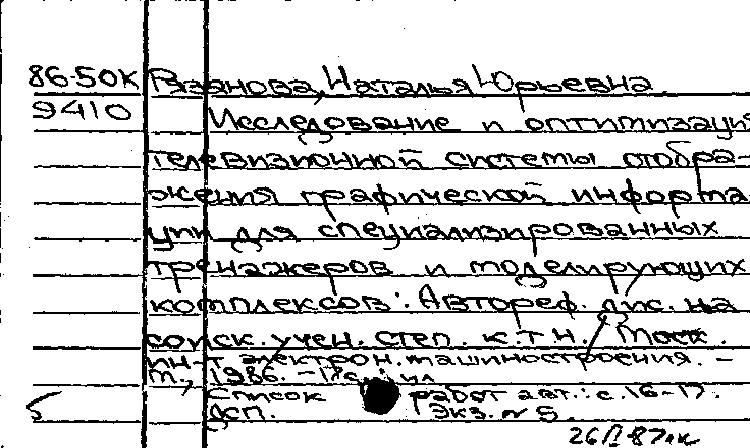 86-50К Рязанова, Наталья Юрьевна
9410 Исследование и оптимизация
телевизионной системы отобра-
жения графической информа
ции для специализированных
тренажеров и моделирующих
комплексов: Автореф. дис. на
соиск. учен. степ. к.т.н. / Моск.
ин-т электрон. машиностроения. –
М., 1986. – 17с.: ил
Список работ авт.: с. 16-17.
ДСП. Экз. № 5.
5
26/I 87